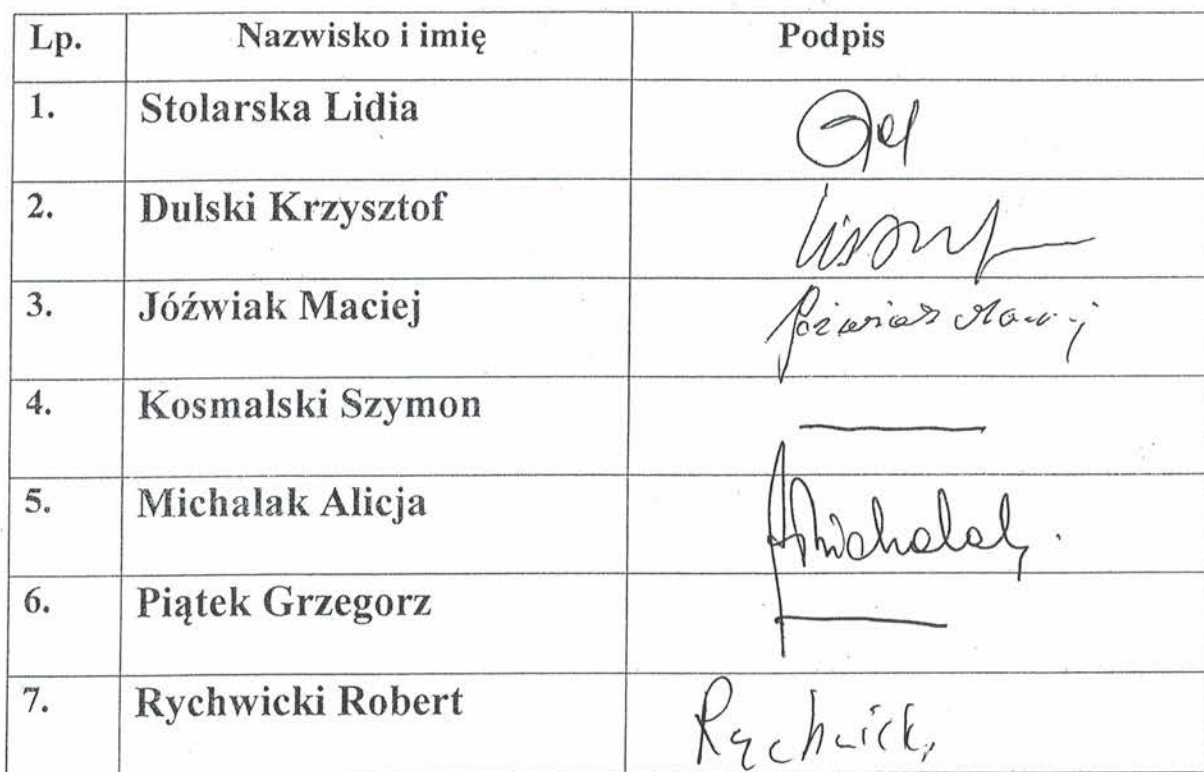 Lp. Nazwisko i imię Podpis
1. Stolarska Lidia
2. Dulski Krzysztof
3. Jóźwiak Maciej
4. Kosmalski Szymon
5. Michalak Alicja AMichalak.
6. Piątek Grzegorz
7. Rychwicki Robert Rychwicki